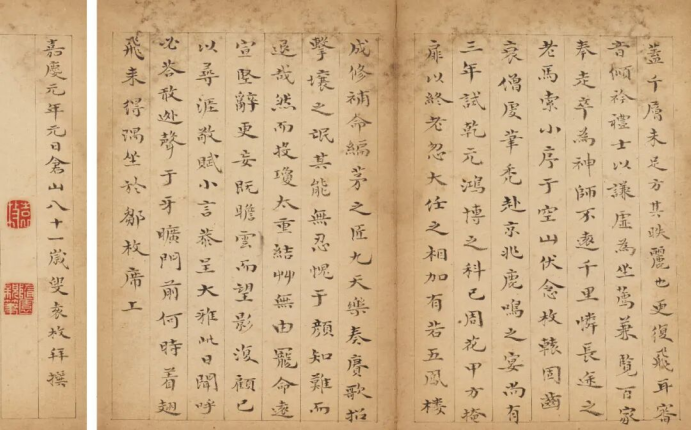 蓋千層未足方其映麗也更復飛耳審
音傾衿禮士以謙虛為坐萬兼覽百家
奉走卒為神師不遠千里憐長途之
老馬索小序于空山伏念枚轅固齒
衰僧虔筆禿赴京兆鹿鳴之宴尚有
三年試乾元鴻博之科已周花甲方掩
扉以終老忽大任之相加有若五鳳樓
成修補命編茅之匠九天樂奏賡歌招
擊壤之氓其能無忍愧于顏知難而
退哉然而投瓊太重結艸無由寵命遠
宣堅辭更妄既瞻雲而望影復顧己
以尋涯敬賦小言恭呈大雅此日聞呼
必答敢逊聲于牙曠門前何時着翅
飛來得隅坐於鄒枚席上
嘉慶元年元日倉山八十一歲叟袁枚拜撰